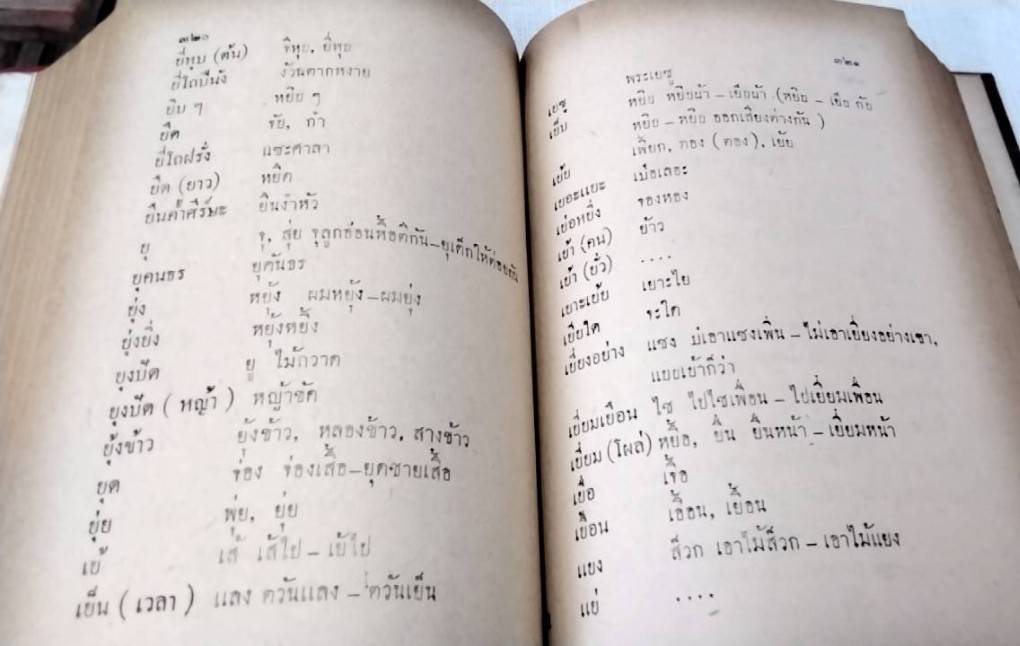 ๓๒๐
ยี่หุบ (ต้น) จี่หุย, ยี่หุย
ยี่โถปีนัง งวันตากหงาย
ยิบ ๆ หยิย ๆ
ยึด จับ, กำ
ยี่โถฝรั่ง แซะศาลา
ยืด (ยาว) หยืด
ยืนค้ำศีร์ษะ ยืนง่ำหัว
ยุ จุ, สุ่ย จุลูกอ่อนหื้อตีกัน–ยุเด็กให้ต่อยกัน
ยุคนธร ยุคันธร
ยุ่ง หยุ้ง ผมหยุ้ง–ผมยุ่ง
ยุ่งยิ่ง หยุ้งหยิ้ง
ยุงปัด ยู ไม้กวาด
ยุงปัด (หญ้า) หญ้าขัด
ยุ้งข้าว ยุ้งข้าว, หลองข้าว, สางข้าว
ยุด จ่อง จ่องเสื้อ–ยุดชายเสื้อ
ยุ่ย พุ่ย, ยุ่ย
เย้ เส้ เส้ไป–เย้ไป
เย็น (เวลา) แลง ตวันแลง–ตวันเย็น
๓๒๑
เยซู พระเยซู
เย็บ หยิย หยิยผ้า–เย็บผ้า (หยิย–เย็บ กับ
หยิย–หยิบ ออกเสียงต่างกัน)
เย้ย เพียก, ตอง (ตอง), เย้ย
เยอะแยะ เบ้อเลอะ
เย่อหยิ่ง จองหอง
เย้า (คน) ย้าว
เย้า (ยั่ว) ....
เยาะเย้ย เยาะไย
เยียใด จะใด
เยี่ยงอย่าง แซง บ่เอาแซงเพิ่น–ไม่เอาเยี่ยงอย่างเขา,
แยยเย้าก็ว่า
เยี่ยมเยือน ไซ ไปไซเพื่อน–ไปเยี่ยมเพื่อน
เยี่ยม (โผล่) หยื้อ, ยื่น ยื่นหน้า–เยี่ยมหน้า
เยื่อ เจื้อ
เยือน เอื้อน, เยื้อน
แยง สีวก เอาไม้สีวก–เอาไม้แยง
แย่ ....